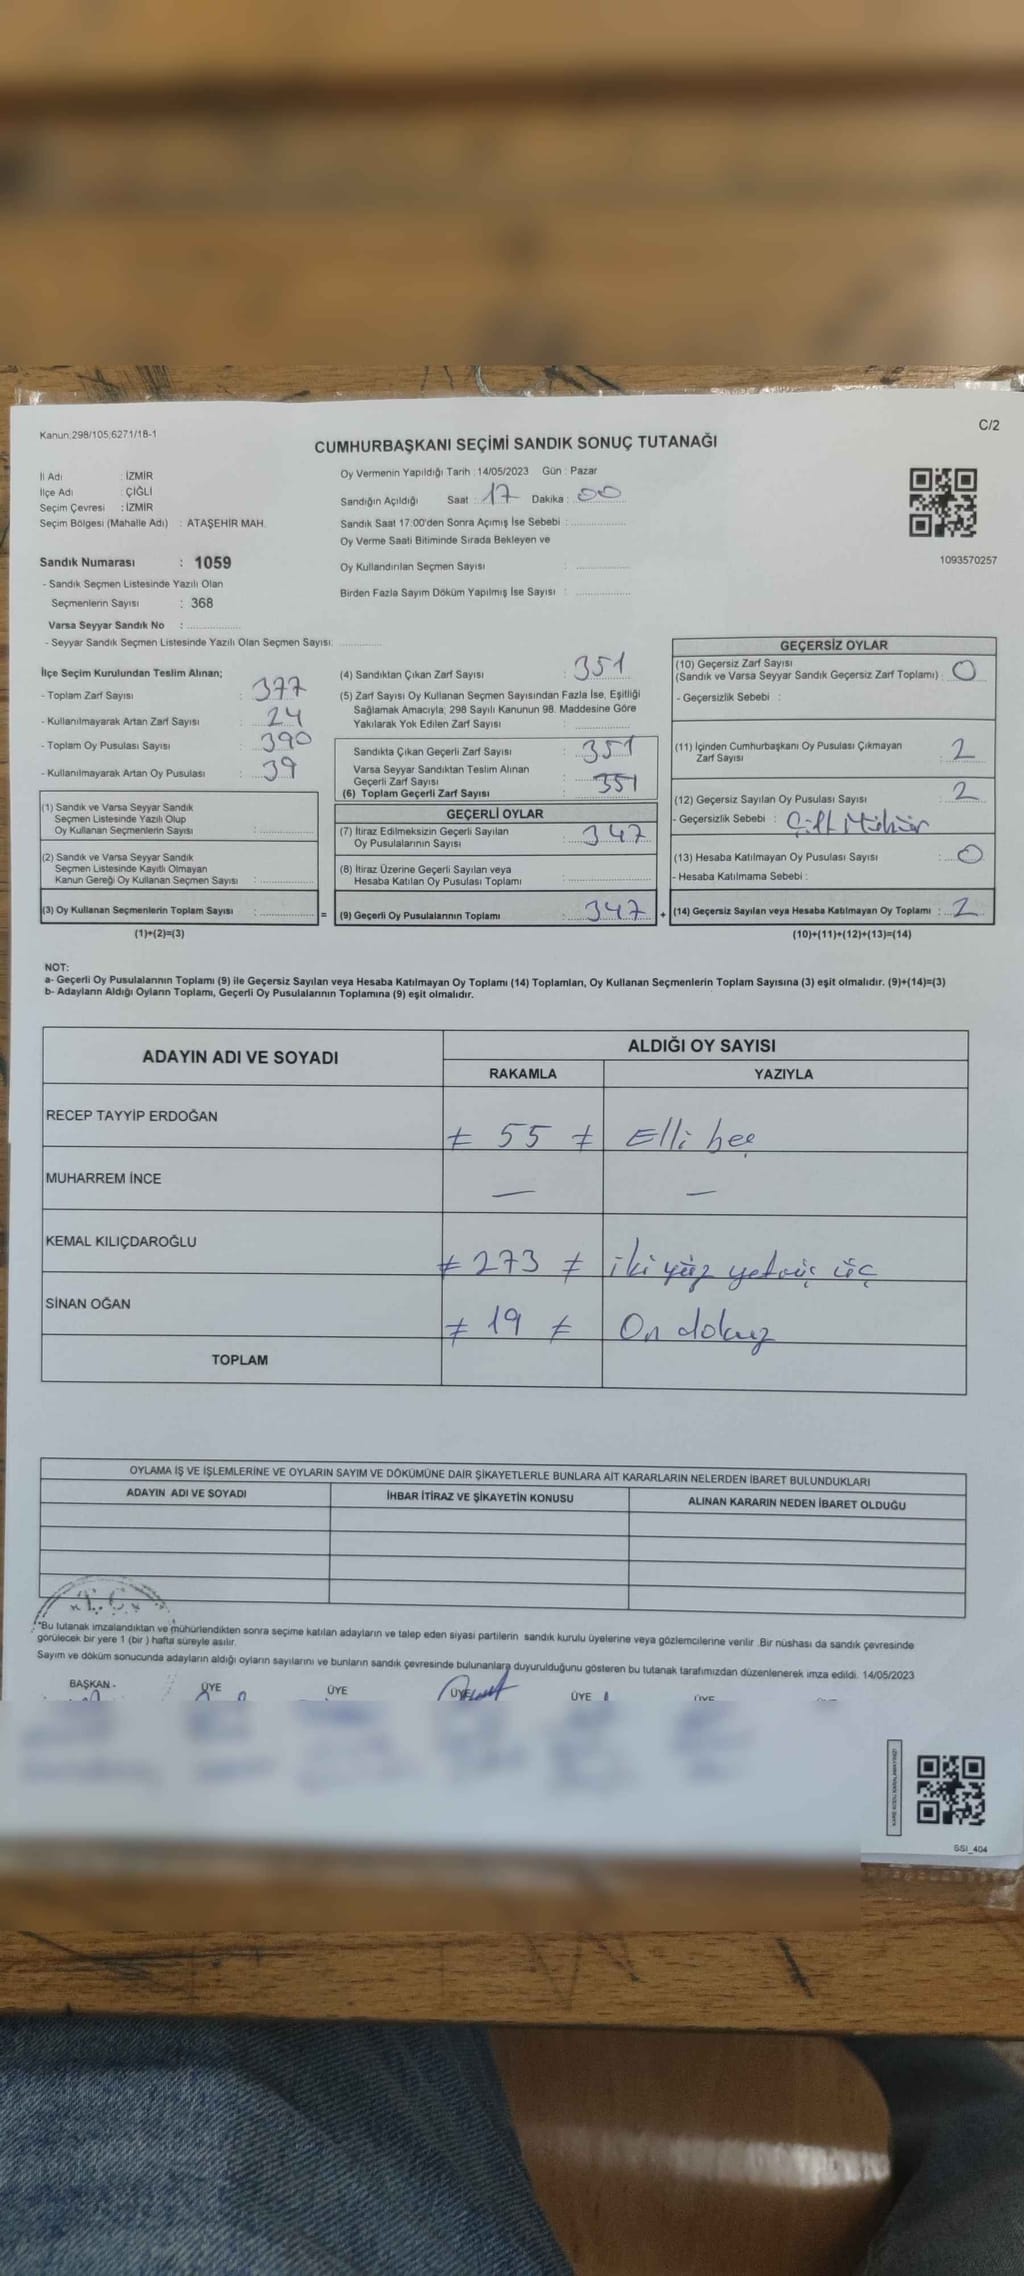 Kanun;298/105;6271/18-1
C/2
CUMHURBAŞKANI SEÇİMİ SANDIK SONUÇ TUTANAĞI
İl Adı : İZMİR
İlçe Adı : ÇİĞLİ
Seçim Çevresi : İZMİR
Seçim Bölgesi (Mahalle Adı) : ATAŞEHİR MAH.
Oy Vermenin Yapıldığı Tarih : 14/05/2023 Gün : Pazar
Sandığın Açıldığı Saat : 17 Dakika : 00
Sandık Saat 17:00'den Sonra Açımış İse Sebebi :
Oy Verme Saati Bitiminde Sırada Bekleyen ve
Oy Kullandırılan Seçmen Sayısı :
Birden Fazla Sayım Döküm Yapılmış İse Sayısı :
1093570257
Sandık Numarası : 1059
- Sandık Seçmen Listesinde Yazılı Olan
Seçmenlerin Sayısı : 368
Varsa Seyyar Sandık No :
- Seyyar Sandık Seçmen Listesinde Yazılı Olan Seçmen Sayısı:
İlçe Seçim Kurulundan Teslim Alınan;
- Toplam Zarf Sayısı : 377
- Kullanılmayarak Artan Zarf Sayısı : 24
- Toplam Oy Pusulası Sayısı : 390
- Kullanılmayarak Artan Oy Pusulası : 39
(1) Sandık ve Varsa Seyyar Sandık
Seçmen Listesinde Yazılı Olup
Oy Kullanan Seçmenlerin Sayısı :
(2) Sandık ve Varsa Seyyar Sandık
Seçmen Listesinde Kayıtlı Olmayan
Kanun Gereği Oy Kullanan Seçmen Sayısı :
(3) Oy Kullanan Seçmenlerin Toplam Sayısı :
(1)+(2)=(3)
(4) Sandıktan Çıkan Zarf Sayısı : 351
(5) Zarf Sayısı Oy Kullanan Seçmen Sayısından Fazla İse, Eşitliği
Sağlamak Amacıyla; 298 Sayılı Kanunun 98. Maddesine Göre
Yakılarak Yok Edilen Zarf Sayısı :
Sandıkta Çıkan Geçerli Zarf Sayısı : 351
Varsa Seyyar Sandıktan Teslim Alınan
Geçerli Zarf Sayısı :
(6) Toplam Geçerli Zarf Sayısı : 351
GEÇERLİ OYLAR
(7) İtiraz Edilmeksizin Geçerli Sayılan
Oy Pusulalarının Sayısı : 347
(8) İtiraz Üzerine Geçerli Sayılan veya
Hesaba Katılan Oy Pusulası Toplamı :
= (9) Geçerli Oy Pusulalarının Toplamı : 347 +
GEÇERSİZ OYLAR
(10) Geçersiz Zarf Sayısı
(Sandık ve Varsa Seyyar Sandık Geçersiz Zarf Toplamı) : 0
- Geçersizlik Sebebi :
(11) İçinden Cumhurbaşkanı Oy Pusulası Çıkmayan
Zarf Sayısı : 2
(12) Geçersiz Sayılan Oy Pusulası Sayısı : 2
- Geçersizlik Sebebi : Çift Mühür
(13) Hesaba Katılmayan Oy Pusulası Sayısı : 0
- Hesaba Katılmama Sebebi :
(14) Geçersiz Sayılan veya Hesaba Katılmayan Oy Toplamı : 2
(10)+(11)+(12)+(13)=(14)
NOT:
a- Geçerli Oy Pusulalarının Toplamı (9) ile Geçersiz Sayılan veya Hesaba Katılmayan Oy Toplamı (14) Toplamları, Oy Kullanan Seçmenlerin Toplam Sayısına (3) eşit olmalıdır. (9)+(14)=(3)
b- Adayların Aldığı Oyların Toplamı, Geçerli Oy Pusulalarının Toplamına (9) eşit olmalıdır.
ADAYIN ADI VE SOYADI
ALDIĞI OY SAYISI
RAKAMLA YAZIYLA
RECEP TAYYİP ERDOĞAN ≠ 55 ≠ Elli beş
MUHARREM İNCE — —
KEMAL KILIÇDAROĞLU ≠ 273 ≠ iki yüz yetmiş üç
SİNAN OĞAN ≠ 19 ≠ On dokuz
TOPLAM
OYLAMA İŞ VE İŞLEMLERİNE VE OYLARIN SAYIM VE DÖKÜMÜNE DAİR ŞİKAYETLERLE BUNLARA AİT KARARLARIN NELERDEN İBARET BULUNDUKLARI
ADAYIN ADI VE SOYADI İHBAR İTİRAZ VE ŞİKAYETİN KONUSU ALINAN KARARIN NEDEN İBARET OLDUĞU
T.C.
*Bu tutanak imzalandıktan ve mühürlendikten sonra seçime katılan adayların ve talep eden siyasi partilerin sandık kurulu üyelerine veya gözlemcilerine verilir .Bir nüshası da sandık çevresinde
görülecek bir yere 1 (bir ) hafta süreyle asılır.
Sayım ve döküm sonucunda adayların aldığı oyların sayılarını ve bunların sandık çevresinde bulunanlara duyurulduğunu gösteren bu tutanak tarafımızdan düzenlenerek imza edildi. 14/05/2023
BAŞKAN ÜYE ÜYE ÜYE ÜYE ÜYE
SSI_404